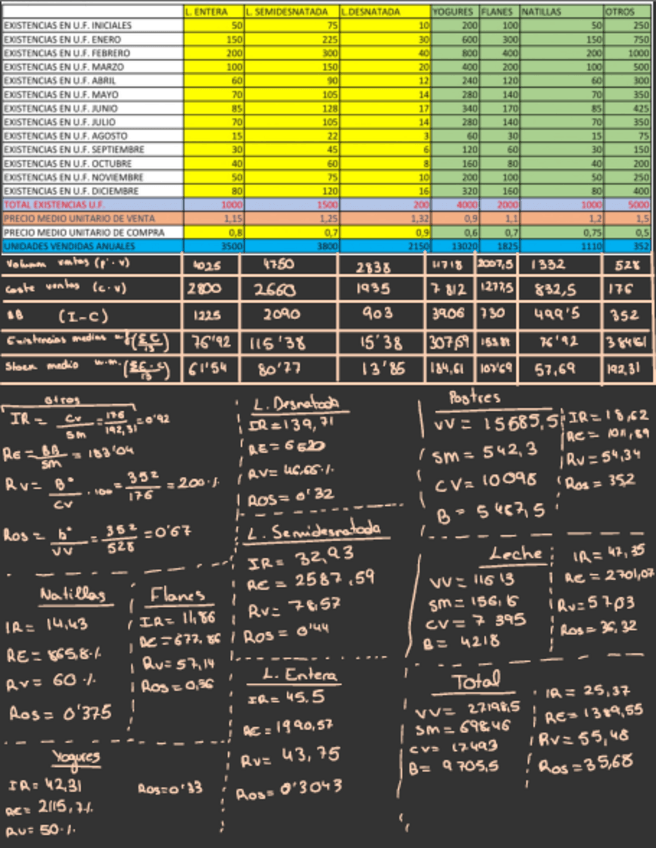 L. ENTERA L. SEMIDESNATADA L.DESNATADA YOGURES FLANES NATILLAS OTROS
EXISTENCIAS EN U.F. INICIALES 50 75 10 200 100 50 250
EXISTENCIAS EN U.F. ENERO 150 225 30 600 300 150 750
EXISTENCIAS EN U.F. FEBRERO 200 300 40 800 400 200 1000
EXISTENCIAS EN U.F. MARZO 100 150 20 400 200 100 500
EXISTENCIAS EN U.F. ABRIL 60 90 12 240 120 60 300
EXISTENCIAS EN U.F. MAYO 70 105 14 280 140 70 350
EXISTENCIAS EN U.F. JUNIO 85 128 17 340 170 85 425
EXISTENCIAS EN U.F. JULIO 70 105 14 280 140 70 350
EXISTENCIAS EN U.F. AGOSTO 15 22 3 60 30 15 75
EXISTENCIAS EN U.F. SEPTIEMBRE 30 45 6 120 60 30 150
EXISTENCIAS EN U.F. OCTUBRE 40 60 8 160 80 40 200
EXISTENCIAS EN U.F. NOVIEMBRE 50 75 10 200 100 50 250
EXISTENCIAS EN U.F. DICIEMBRE 80 120 16 320 160 80 400
TOTAL EXISTENCIAS U.F. 1000 1500 200 4000 2000 1000 5000
PRECIO MEDIO UNITARIO DE VENTA 1,15 1,25 1,32 0,9 1,1 1,2 1,5
PRECIO MEDIO UNITARIO DE COMPRA 0,8 0,7 0,9 0,6 0,7 0,75 0,5
UNIDADES VENDIDAS ANUALES 3500 3800 2150 13020 1825 1110 352
Volumen ventas (p·v) 4025 4750 2838 11718 2007,5 1332 528
Coste ventas (c·v) 2800 2660 1935 7812 1277,5 832,5 176
BB (I-C) 1225 2090 903 3906 730 499'5 352
Existencias medias 76'92 115'38 15'38 307,69 153,81 76'92 384,61
Stock medio 61'54 80'77 13'85 184,61 107,69 57,69 192,31
otros
IR = CV/SM = 176/192,31 = 0'92
RE = BB/SM = 183'04
RV = Bº/CV · 100 = 352/176 = 200·/.
ROS = bº/VV = 352/528 = 0'67
Natillas
IR = 14,43
RE = 865,8·/.
RV = 60 ·/.
ROS = 0'375
Flanes
IR = 11,86
RE = 677,86
RV = 57,14
ROS = 0,36
Yogures
IR = 42,31
RE = 2115,7·/.
RV = 50·/.
ROS = 0'33
L. Desnatada
IR = 139,71
RE = 6520
RV = 46,66·/.
ROS = 0'32
L. Semidesnatada
IR = 32,93
RE = 2587,59
RV = 78,57
ROS = 0'44
L. Entera
IR = 45.5
RE = 1990,57
RV = 43,75
ROS = 0'3043
Postres
VV = 15685,5
SM = 542,3
CV = 10098
B = 5487,5
IR = 18,62
RE = 1011,89
RV = 54,34
ROS = 35,2
Leche
VV = 11613
SM = 156,16
CV = 7395
B = 4218
IR = 47,35
RE = 2701,07
RV = 57,03
ROS = 36,32
Total
VV = 27198,5
SM = 698,46
CV = 17493
B = 9705,5
IR = 25,37
RE = 1389,55
RV = 55,48
ROS = 35,68